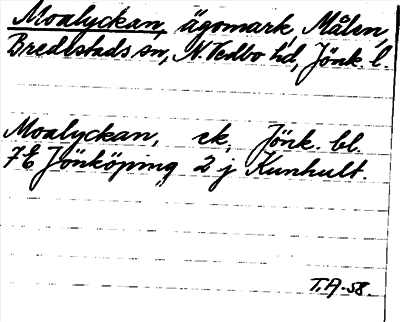 Moalyckan, ägomark, Målen,
Bredestads sn, N. Vedbo hd, Jönk. l.
Moalyckan, ek. Jönk. bl.
7E Jönköping 2 j Kunhult.
T.A-58.